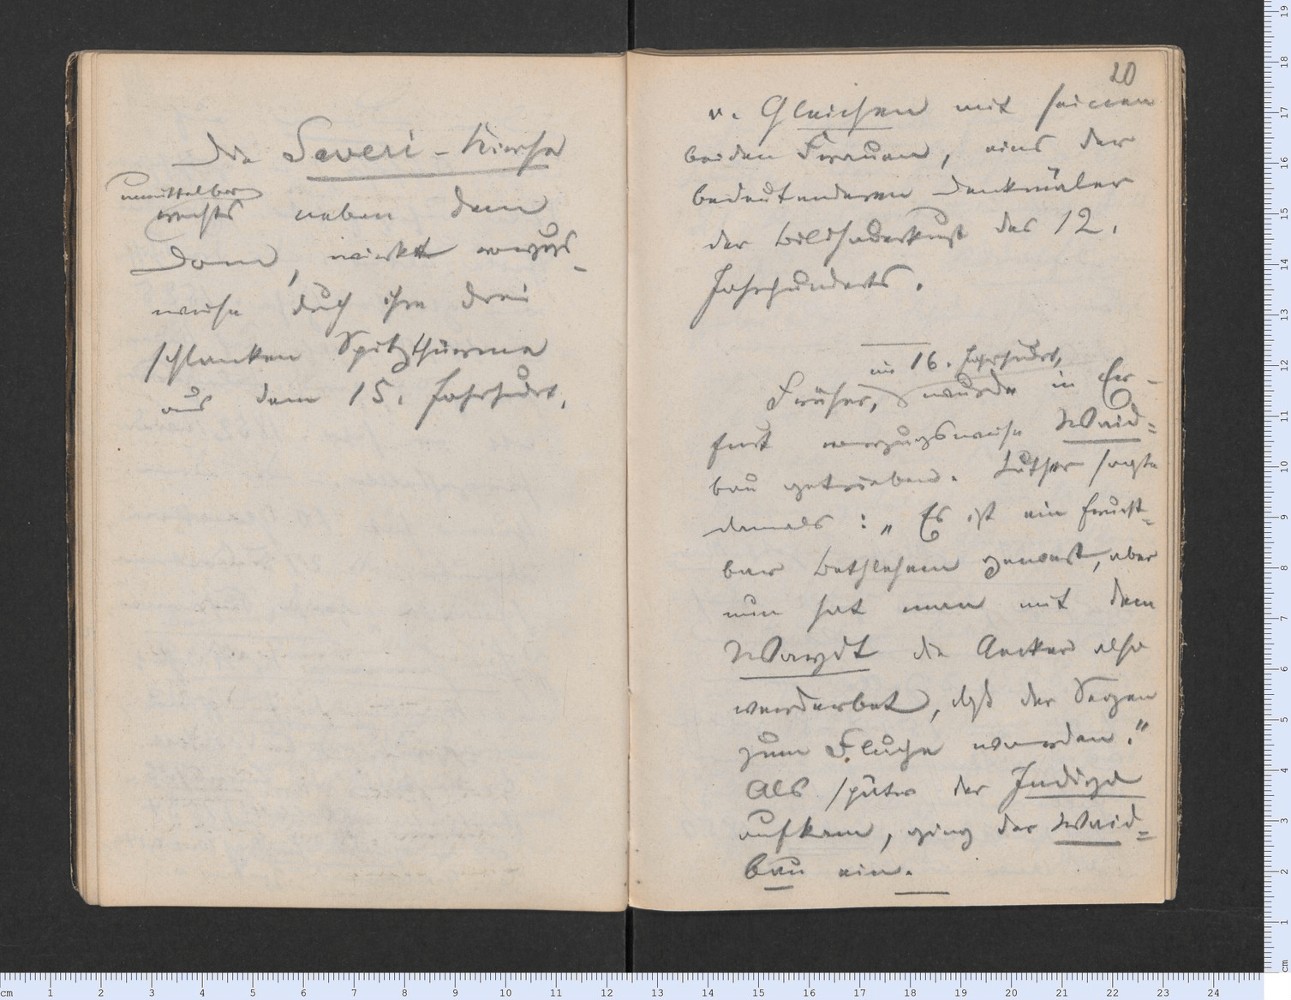 Die Severi-Kirche
unmittelbar
rechts neben dem
Dom, wirkt vorzugs-
weise durch ihre drei
schlanken Spitzthürme
aus dem 15. Jahrhundrt.
20
v. Gleichen mit seinen
beiden Frauen, eins der
bedeutenderen Denkmäler
der Bildhauerkunst des 12.
Jahrhunderts.
im 16. Jahrhundrt,
Früher, wurde in Er-
furt vorzugsweise Waid-
bau getrieben. Luther sagte
damals: „Es ist ein frucht-
bar Bethlehem gewest, aber
nun hat man mit dem
Waydt die Aecker also
verderbet, daß der Segen
zum Fluche worden."
Als später der Indigo
aufkam, ging der Waid-
bau ein.